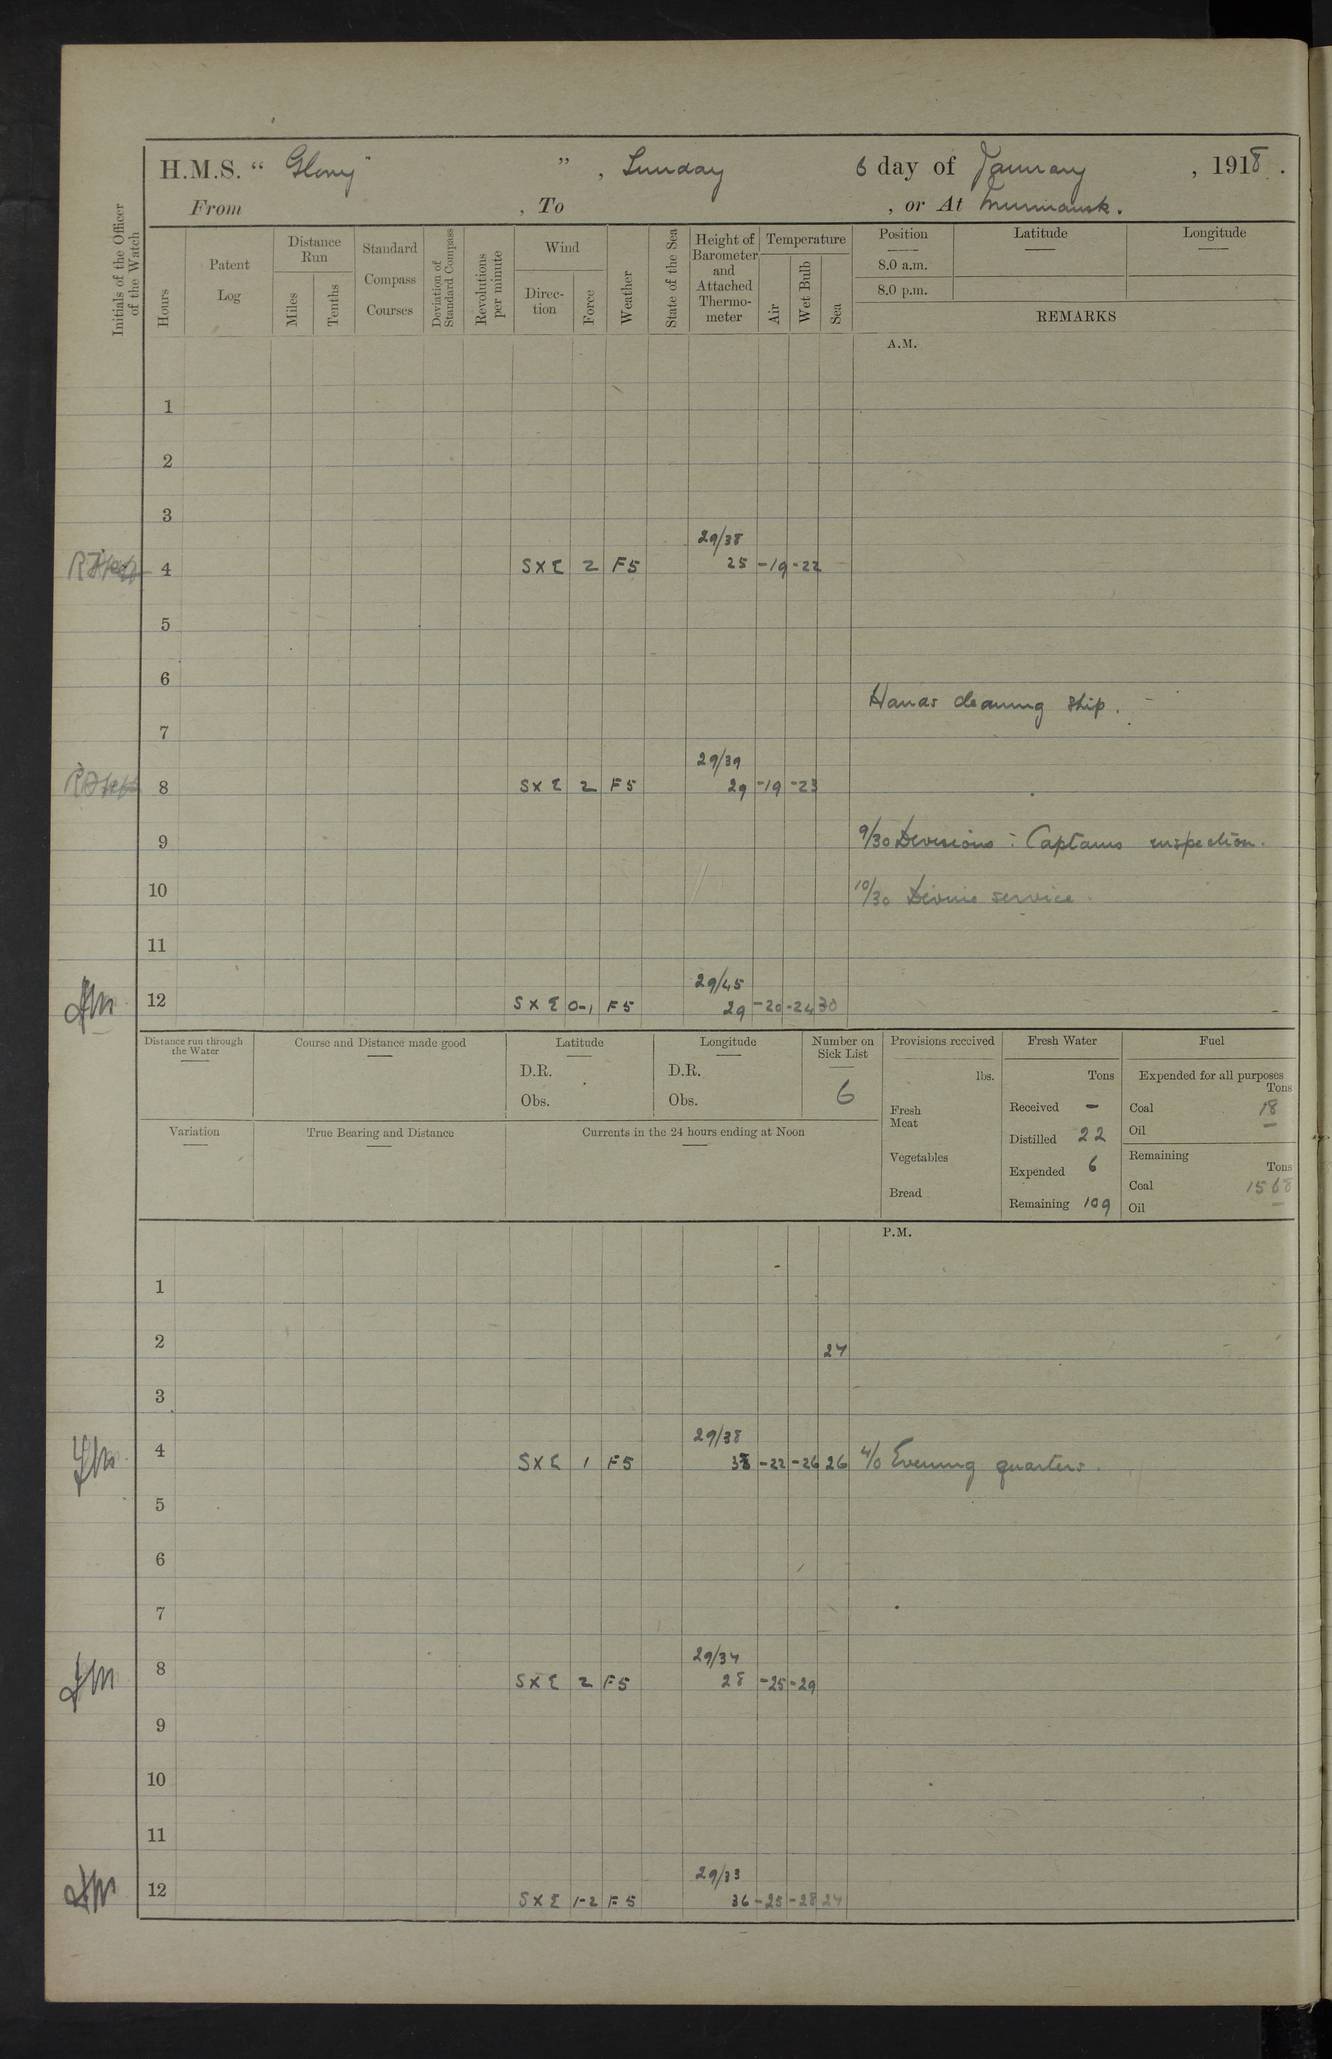 H.M.S. “ Glory” ” , Sunday 6 day of January , 1918 .
From , To , or At Murmansk.
Initials of the Officer of the Watch
Hours
Patent Log
Distance Run
Miles
Tenths
Standard Compass Courses
Deviation of Standard Compass
Revolutions per minute
Wind
Direc-tion
Force
Weather
State of the Sea
Height of Barometer and Attached Thermo-meter
Temperature
Air
Wet Bulb
Sea
Position
8.0 a.m.
8.0 p.m.
Latitude
Longitude
REMARKS
A.M.
1
2
3
29/38
4 S X E 2 F5 25 -19 -22
5
6
Hands cleaning ship.
7
29/39
8 S X E 2 F5 29 -19 -23
9 9/30 Divisions : Captains inspection.
10 10/30 Divine service.
11
29/45
12 S X E 0-1 F5 29 -20 -24 30
Distance run through the Water
Course and Distance made good
Latitude
D.R.
Obs.
Longitude
D.R.
Obs.
Number on Sick List
6
Provisions received
lbs.
Fresh Meat
Vegetables
Bread
Fresh Water
Tons
Received -
Distilled 22
Expended 6
Remaining 109
Fuel
Expended for all purposes
Tons
Coal 18
Oil -
Remaining
Tons
Coal 1568
Oil -
Variation
True Bearing and Distance
Currents in the 24 hours ending at Noon
P.M.
1
2 27
3
29/38
4 S X E 1 F5 38 -22 -26 26 4/0 Evening quarters.
5
6
7
29/34
8 S X E 2 F5 28 -25 -29
9
10
11
29/33
12 S X E 1-2 F5 36 -25 -28 27